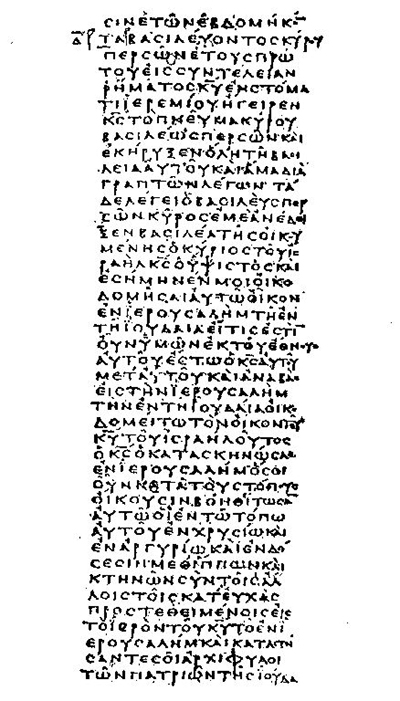 ϹΙΝΕΤΩΝΕΒΔΟΜΗΚ
ΤΑΒΑϹΙΛΕΥΟΝΤΟϹΚΥΡΟΥ
ΠΕΡϹΩΝΕΤΟΥϹΠΡΩ
ΤΟΥΕΙϹϹΥΝΤΕΛΕΙΑΝ
ΡΗΜΑΤΟϹΚ̅Υ̅ΕΝϹΤΟΜΑ
ΤΙΙΕΡΕΜΙΟΥΗΓΕΙΡΕΝ
Κ̅Ϲ̅ΤΟΠΝΕΥΜΑΚΥΡΟΥ
ΒΑϹΙΛΕΩϹΠΕΡϹΩΝΚΑΙ
ΕΚΗΡΥΞΕΝΟΛΗΤΗΒΑϹΙ
ΛΕΙΑΑΥΤΟΥΚΑΙΑΜΑΔΙΑ
ΓΡΑΠΤΩΝΛΕΓΩΝ ΤΑ
ΔΕΛΕΓΕΙΟΒΑϹΙΛΕΥϹΠΕΡ
ϹΩΝΚΥΡΟϹΕΜΕΑΝΕΔΕΙ
ΞΕΝΒΑϹΙΛΕΑΤΗϹΟΙΚΟΥ
ΜΕΝΗϹΟΚΥΡΙΟϹΤΟΥΙϹ
ΡΑΗΛΚ̅Ϲ̅ΟΥΨΙϹΤΟϹΚΑΙ
ΕϹΗΜΗΝΕΝΜΟΙΟΙΚΟ
ΔΟΜΗϹΑΙΑΥΤΩΟΙΚΟΝ
ΕΝΙΕΡΟΥϹΑΛΗΜΤΗΕΝ
ΤΗΙΟΥΔΑΙΑΕΙΤΙϹΕϹΤΙ
ΟΥΝΥΜΩΝΕΚΤΟΥΕΘΝΟΥϹ
ΑΥΤΟΥΕϹΤΩΟΚ̅Ϲ̅ΑΥΤΟΥ
ΜΕΤΑΥΤΟΥΚΑΙΑΝΑΒΑϹ
ΕΙϹΤΗΝΙΕΡΟΥϹΑΛΗΜ
ΤΗΝΕΝΤΗΙΟΥΔΑΙΑΟΙΚΟ
ΔΟΜΕΙΤΩΤΟΝΟΙΚΟΝΤΟΥ
Κ̅Υ̅ΤΟΥΙϹΡΑΗΛΟΥΤΟϹ
ΟΚ̅Ϲ̅ΟΚΑΤΑϹΚΗΝΩϹΑϹ
ΕΝΙΕΡΟΥϹΑΛΗΜΟϹΟΙ
ΟΥΝΚΑΤΑΤΟΥϹΤΟΠΟΥϹ
ΟΙΚΟΥϹΙΝΒΟΗΘΙΤΩϹΑ
ΑΥΤΩΟΙΕΝΤΩΤΟΠΩ
ΑΥΤΟΥΕΝΧΡΥϹΙΩΚΑΙ
ΕΝΑΡΓΥΡΙΩΚΑΙΕΝΔΟ
ϹΕϹΙΝΜΕΘΙΠΠΩΝΚΑΙ
ΚΤΗΝΩΝϹΥΝΤΟΙϹΑΛ
ΛΟΙϹΤΟΙϹΚΑΤΕΥΧΑϹ
ΠΡΟϹΤΕΘΕΙΜΕΝΟΙϹΕΙϹ
ΤΟΙΕΡΟΝΤΟΥΚ̅Υ̅ΤΟΕΝΙ
ΕΡΟΥϹΑΛΗΜΚΑΙΚΑΤΑϹΤΗ
ϹΑΝΤΕϹΟΙΑΡΧΙΦΥΛΟΙ
ΤΩΝΠΑΤΡΙΩΝΤΗϹΙΟΥΔΑ